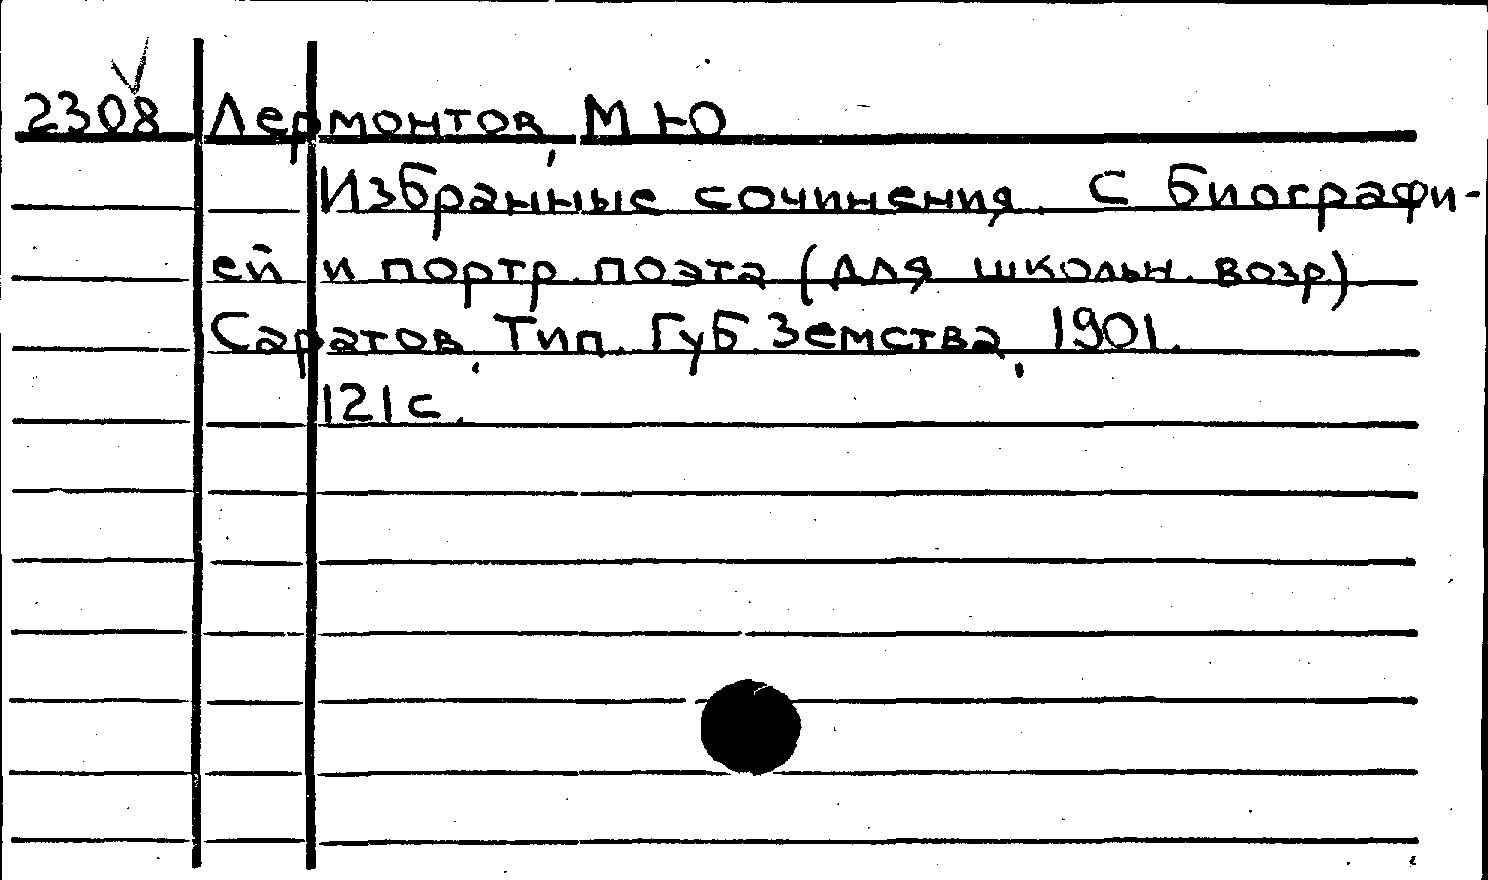 2308 Лермонтов, М Ю
Избранные сочинения. С биографи-
ей и портр. поэта (для школьн. возр)
Саратов, Тип. Губ. Земства, 1901.
121с.